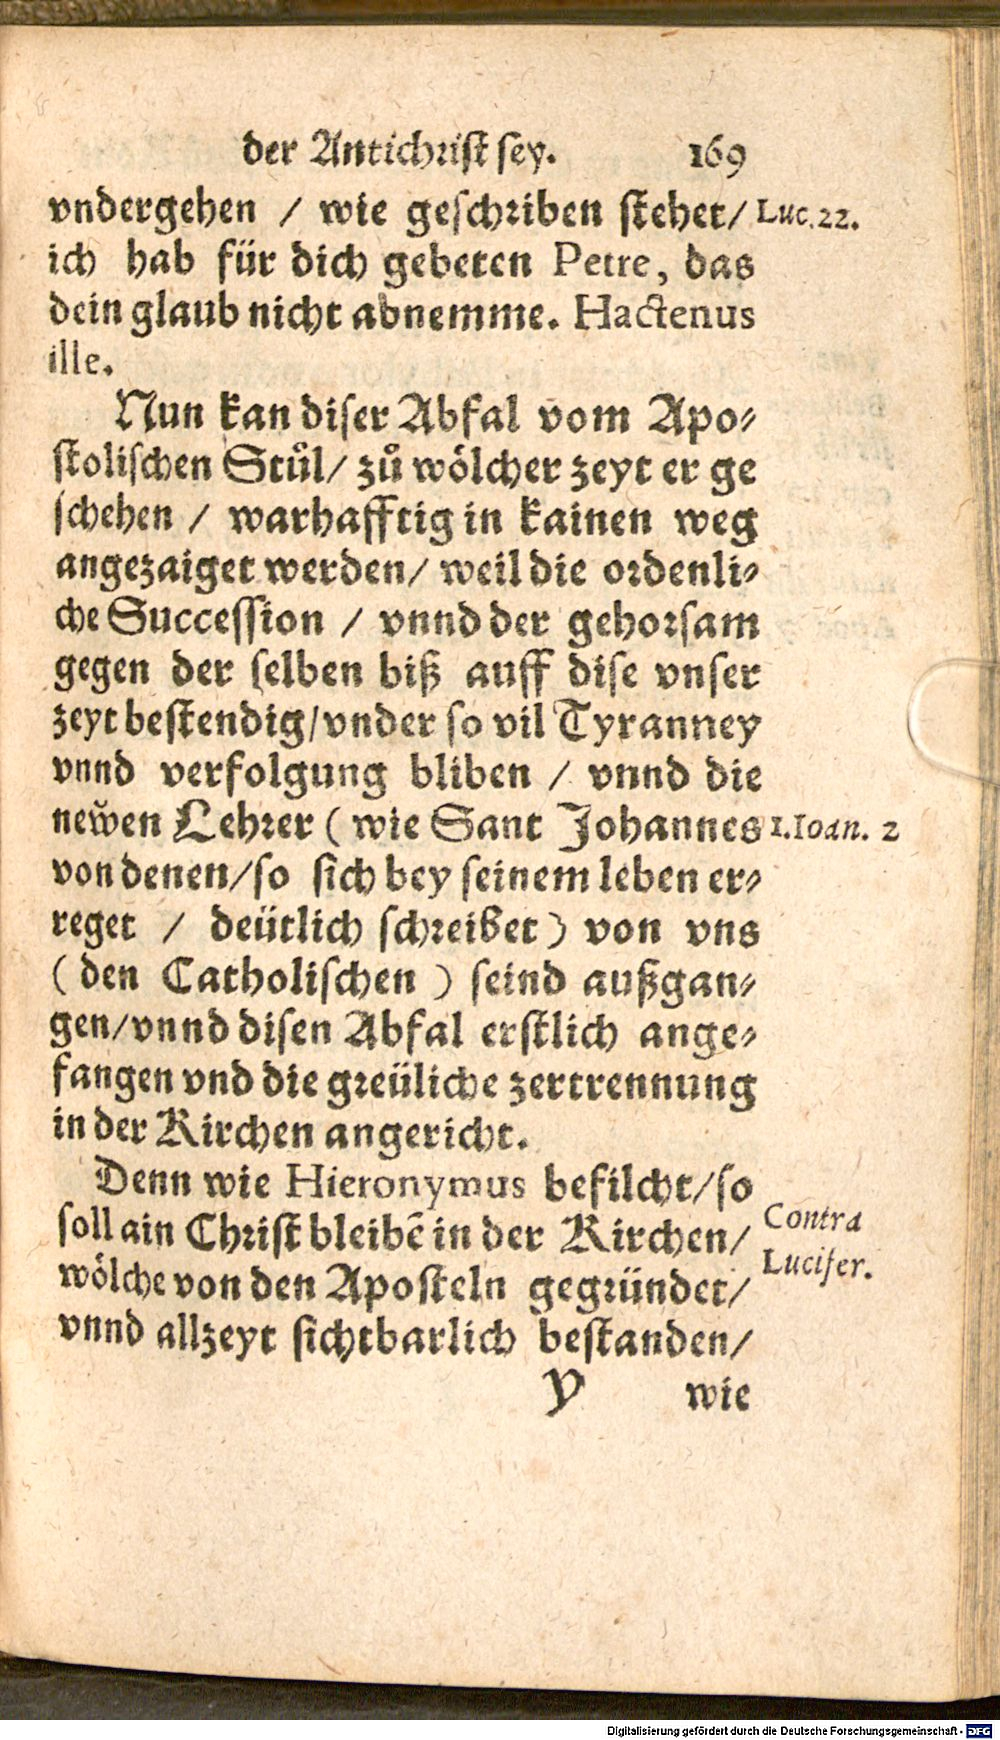 der Antichrist sey. 169
vndergehen / wie geschriben stehet/ Luc.22.
ich hab für dich gebeten Petre, das
dein glaub nicht abnemme. Hactenus
ille.
Nun kan diser Abfal vom Apo-
stolischen Stůl/ zů wölcher zeyt er ge
schehen / warhafftig in kainen weg
angezaiget werden/ weil die ordenli-
che Succession / vnnd der gehorsam
gegen der selben biß auff dise vnser
zeyt bestendig/vnder so vil Tyranney
vnnd verfolgung bliben / vnnd die
newen Lehrer ( wie Sant Johannes 1.Ioan. 2
von denen/so sich bey seinem leben er-
reget / deütlich schreibet ) von vns
( den Catholischen ) seind außgan-
gen/vnnd disen Abfal erstlich ange-
fangen vnd die greüliche zertrennung
in der Kirchen angericht.
Denn wie Hieronymus befilcht/so
soll ain Christ bleibē in der Kirchen/ Contra
wölche von den Aposteln gegründet/ Lucifer.
vnnd allzeyt sichtbarlich bestanden/
Y wie
Digitalisierung gefördert durch die Deutsche Forschungsgemeinschaft - DFG